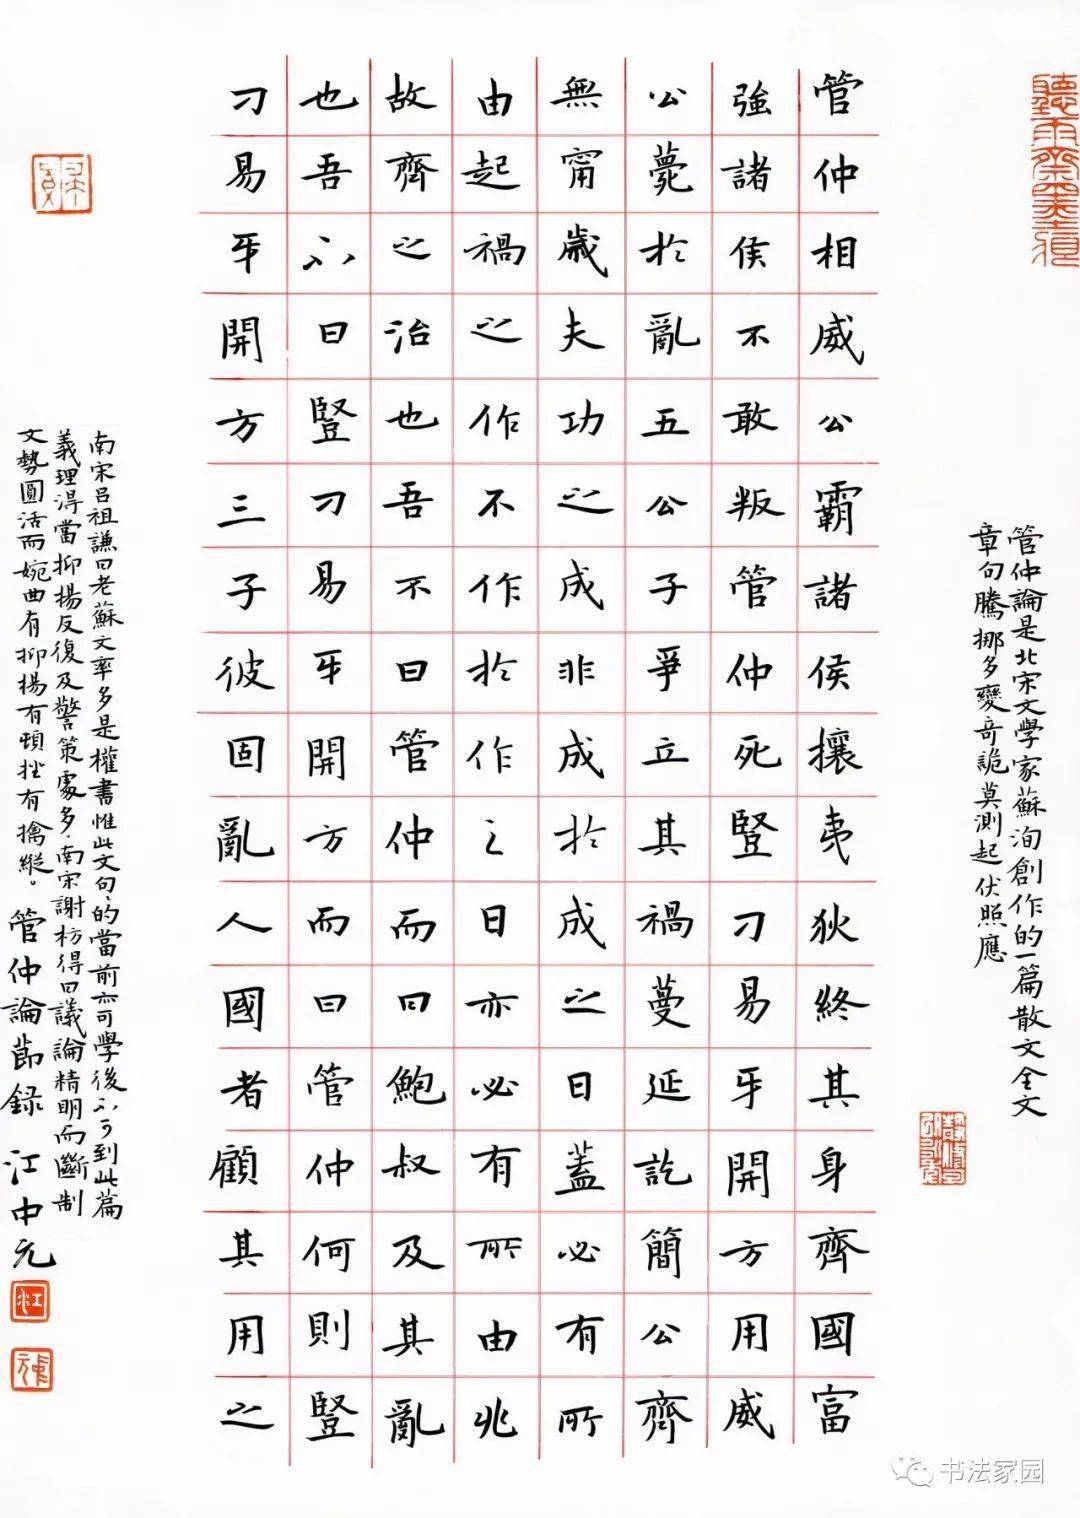 聽雨齋墨痕
管仲論是北宋文學家蘇洵創作的一篇散文全文
章句騰挪多變奇詭莫測起伏照應
管仲相威公霸諸侯攘夷狄終其身齊國富
強諸侯不敢叛管仲死豎刁易牙開方用威
公薨於亂五公子爭立其禍蔓延訖簡公齊
無甯歲夫功之成非成於成之日蓋必有所
由起禍之作不作於作之日亦必有所由兆
故齊之治也吾不曰管仲而曰鮑叔及其亂
也吾不曰豎刁易牙開方而曰管仲何則豎
刁易牙開方三子彼固亂人國者顧其用之
南宋呂祖謙曰老蘇文率多是權書惟此文句的當前亦可學後不可到此篇
義理得當抑揚反復及警策處多南宋謝枋得曰議論精明而斷制
文勢圓活而婉曲有抑揚有頓挫有擒縱。管仲論節錄 江中元
书法家园